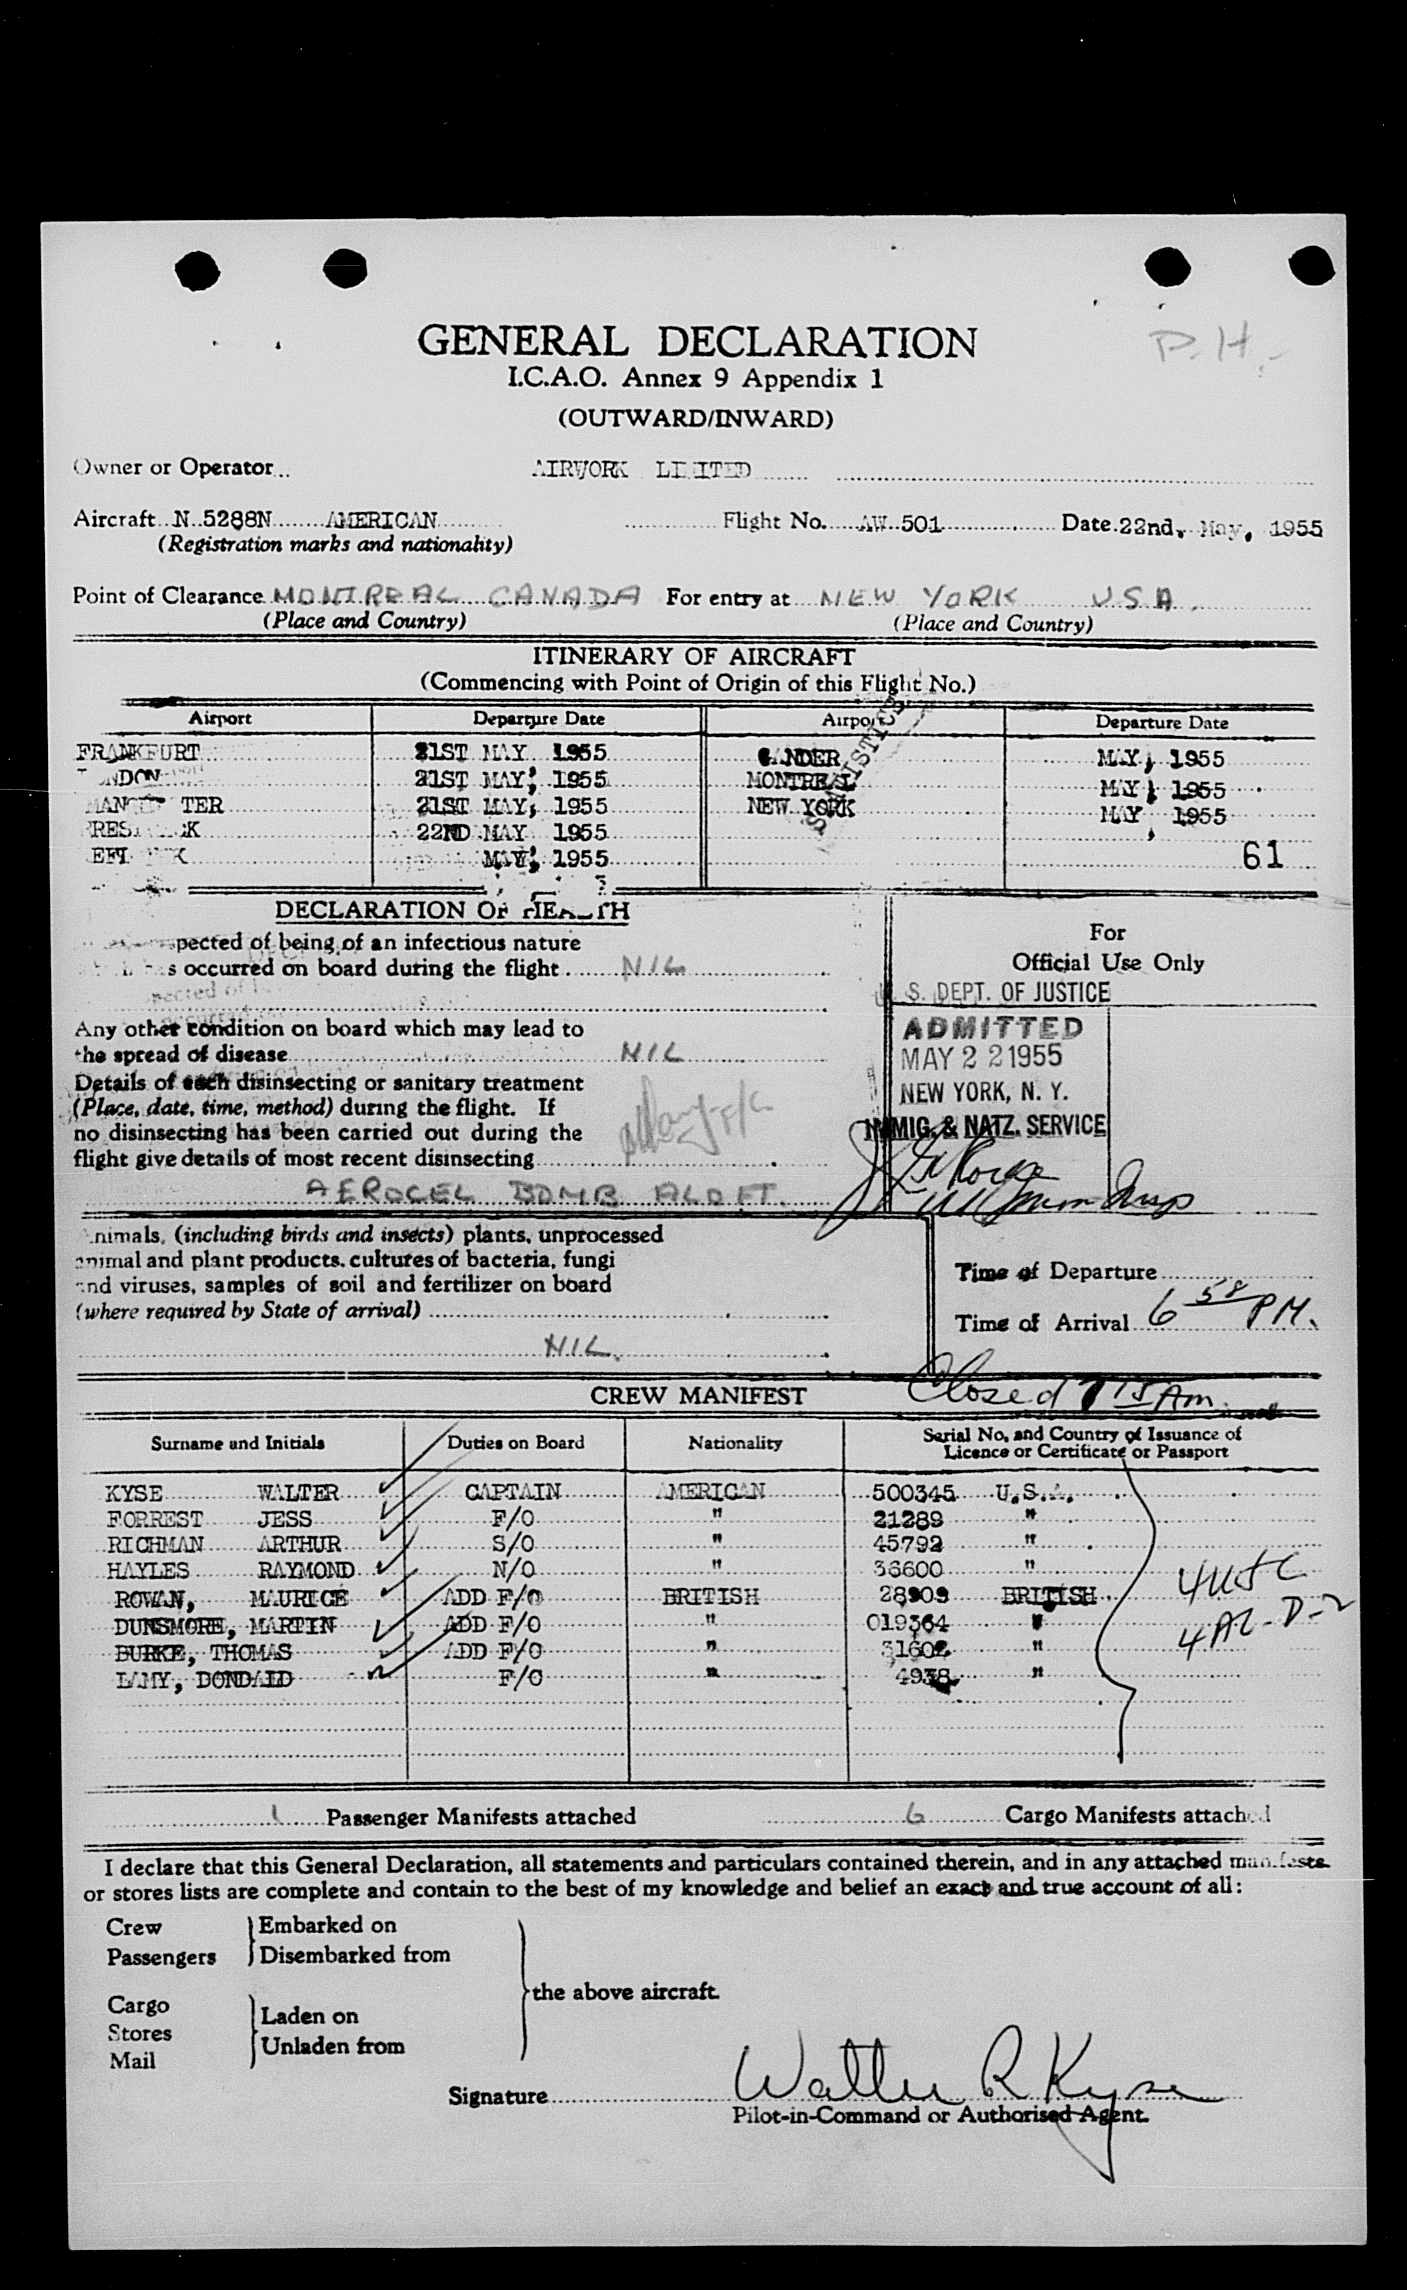 P.H.
GENERAL DECLARATION
I.C.A.O. Annex 9 Appendix 1
(OUTWARD/INWARD)
Owner or Operator AIRWORK LIMITED
Aircraft N 5288N AMERICAN Flight No. AW 501 Date 22nd, May, 1955
(Registration marks and nationality)
Point of Clearance MONTREAL CANADA For entry at NEW YORK USA.
(Place and Country) (Place and Country)
ITINERARY OF AIRCRAFT
(Commencing with Point of Origin of this Flight No.)
Airport Departure Date Airport Departure Date
FRANKFURT 21ST MAY 1955 GANDER MAY, 1955
NDON 21ST MAY, 1955 MONTREAL MAY, 1955
MAN TER 21ST MAY, 1955 NEW YORK MAY 1955
PRES K 22ND MAY 1955
MAY, 1955 61
STATISTICS
DECLARATION OF HEALTH
pected of being of an infectious nature
s occurred on board during the flight NIL
Any other condition on board which may lead to
the spread of disease NIL
Details of each disinsecting or sanitary treatment
(Place, date, time, method) during the flight. If
no disinsecting has been carried out during the
flight give details of most recent disinsecting
AEROCEL BOMB ALOFT.
For
Official Use Only
S. DEPT. OF JUSTICE
ADMITTED
MAY 22 1955
NEW YORK, N. Y.
IMMIG. & NATZ. SERVICE
Animals, (including birds and insects) plants, unprocessed
animal and plant products, cultures of bacteria, fungi
and viruses, samples of soil and fertilizer on board
(where required by State of arrival)
NIL.
Time of Departure
Time of Arrival 6 58 PM.
Closed 7 15 Am.
CREW MANIFEST
Surname and Initials Duties on Board Nationality Serial No. and Country of Issuance of
Licence or Certificate or Passport
KYSE WALTER CAPTAIN AMERICAN 500345 U.S.A.
FORREST JESS F/O " 21289 "
RICHMAN ARTHUR S/O " 45792 "
HAYLES RAYMOND N/O " 36600 "
ROWAN, MAURICE ADD F/O BRITISH 28909 BRITISH
DUNSMORE, MARTIN ADD F/O " 019364 "
BURKE, THOMAS ADD F/O " 31602 "
LAMY, DONDALD F/O " 4938 "
4 USC
4 AL-D-2
1 Passenger Manifests attached 6 Cargo Manifests attached
I declare that this General Declaration, all statements and particulars contained therein, and in any attached manifests
or stores lists are complete and contain to the best of my knowledge and belief an exact and true account of all:
Crew Embarked on
Passengers Disembarked from
the above aircraft.
Cargo Laden on
Stores
Unladen from
Mail
Signature Walter R Kyse
Pilot-in-Command or Authorised Agent.